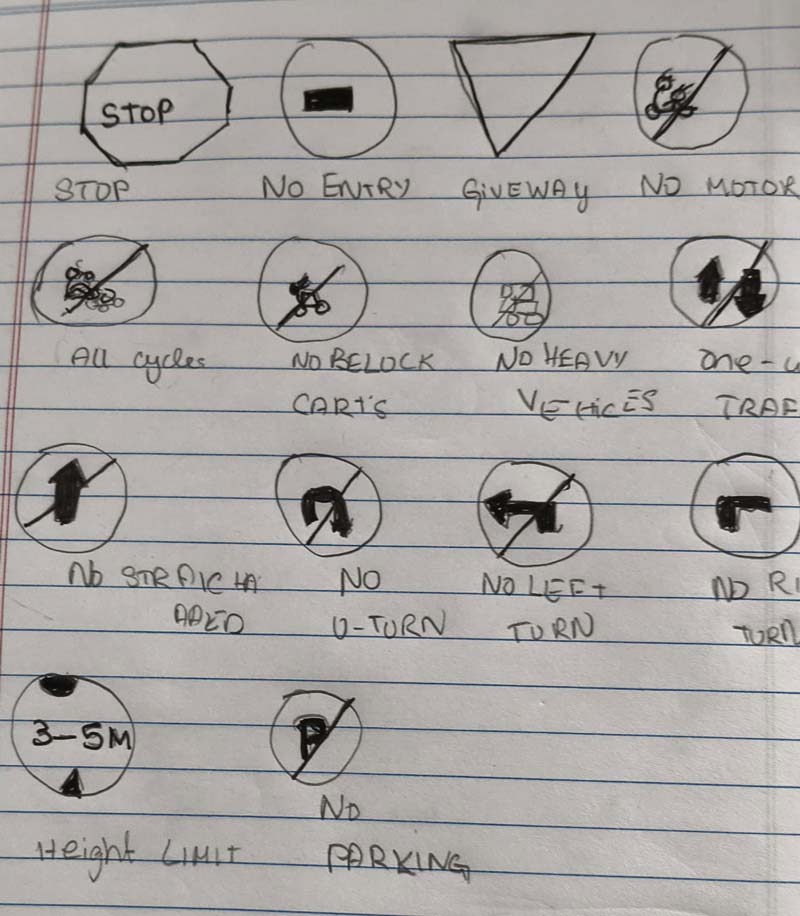 STOP
STOP NO ENTRY GIVEWAY NO MOTOR
All cycles NO BELOCK NO HEAVY one-w
CARTS VEHICES TRAF
NO STRAIGHA NO NO LEFT NO RI
AAED U-TURN TURN TURN
3-5M P
NO
Height LIMIT PARKING